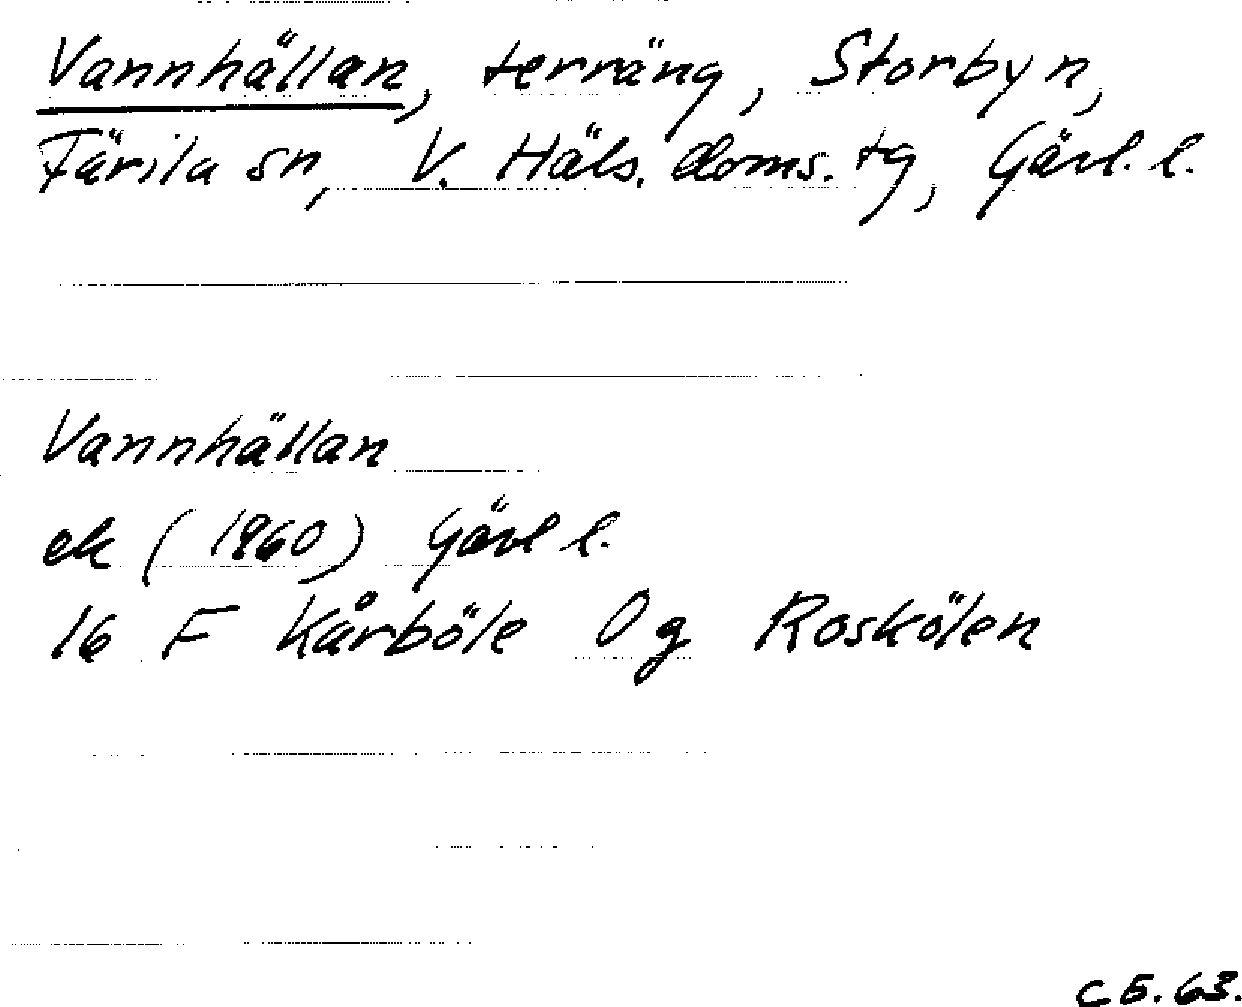 Vannhällan, terräng, Storbyn,
Färila sn, V. Häls. doms. tg, Gävl. l.
Vannhällan
ek (1960) Gävl l.
16 F Kårböle 0 g Roskölen
C E. 63.